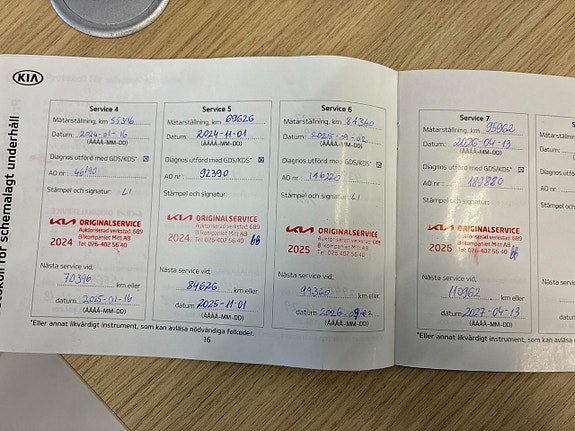 KIA
Protokoll för schemalagt underhåll
Service 4
Mätarställning, km 55396
Datum 2024-01-16
(ÅÅÅÅ-MM-DD)
Diagnos utförd med GDS/KDS*
AO nr 46190
Stämpel och signatur: LI
KIA ORIGINALSERVICE
2024 Auktoriserad verkstad: 689
Bilkompaniet Mitt AB
Tel: 026-402 56 40
Nästa service vid:
70396 km eller
datum 2025-01-16
(ÅÅÅÅ-MM-DD)
Service 5
Mätarställning, km 69626
Datum 2024-11-01
(ÅÅÅÅ-MM-DD)
Diagnos utförd med GDS/KDS*
AO nr 92390
Stämpel och signatur:
KIA ORIGINALSERVICE
2024 Auktoriserad verkstad: 689
Bilkompaniet Mitt AB
Tel: 026-402 56 40
Nästa service vid:
84626 km eller
datum 2025-11-01
(ÅÅÅÅ-MM-DD)
Service 6
Mätarställning, km 84360
Datum: 2025-09-02
(ÅÅÅÅ-MM-DD)
Diagnos utförd med GDS/KDS*
AO nr: 146220
Stämpel och signatur: LI
KIA ORIGINALSERVICE
2025 Auktoriserad verkstad: 689
Bilkompaniet Mitt AB
Tel: 026-402 56 40
Nästa service vid:
99360 km eller
datum 2026-09-02
(ÅÅÅÅ-MM-DD)
*Eller annat likvärdigt instrument, som kan avläsa nödvändiga felkoder.
16
Service 7
Mätarställning, km 95962
Datum 2026-04-13
(ÅÅÅÅ-MM-DD)
Diagnos utförd med GDS/KDS*
AO nr: 189880
Stämpel och signatur:
KIA ORIGINALSERVICE
2026 Auktoriserad verkstad: 689
Bilkompaniet Mitt AB
Tel: 026-402 56 40
Nästa service vid:
110962 km eller
datum 2027-04-13
(ÅÅÅÅ-MM-DD)
*Eller annat likvärdigt instrument, som kan